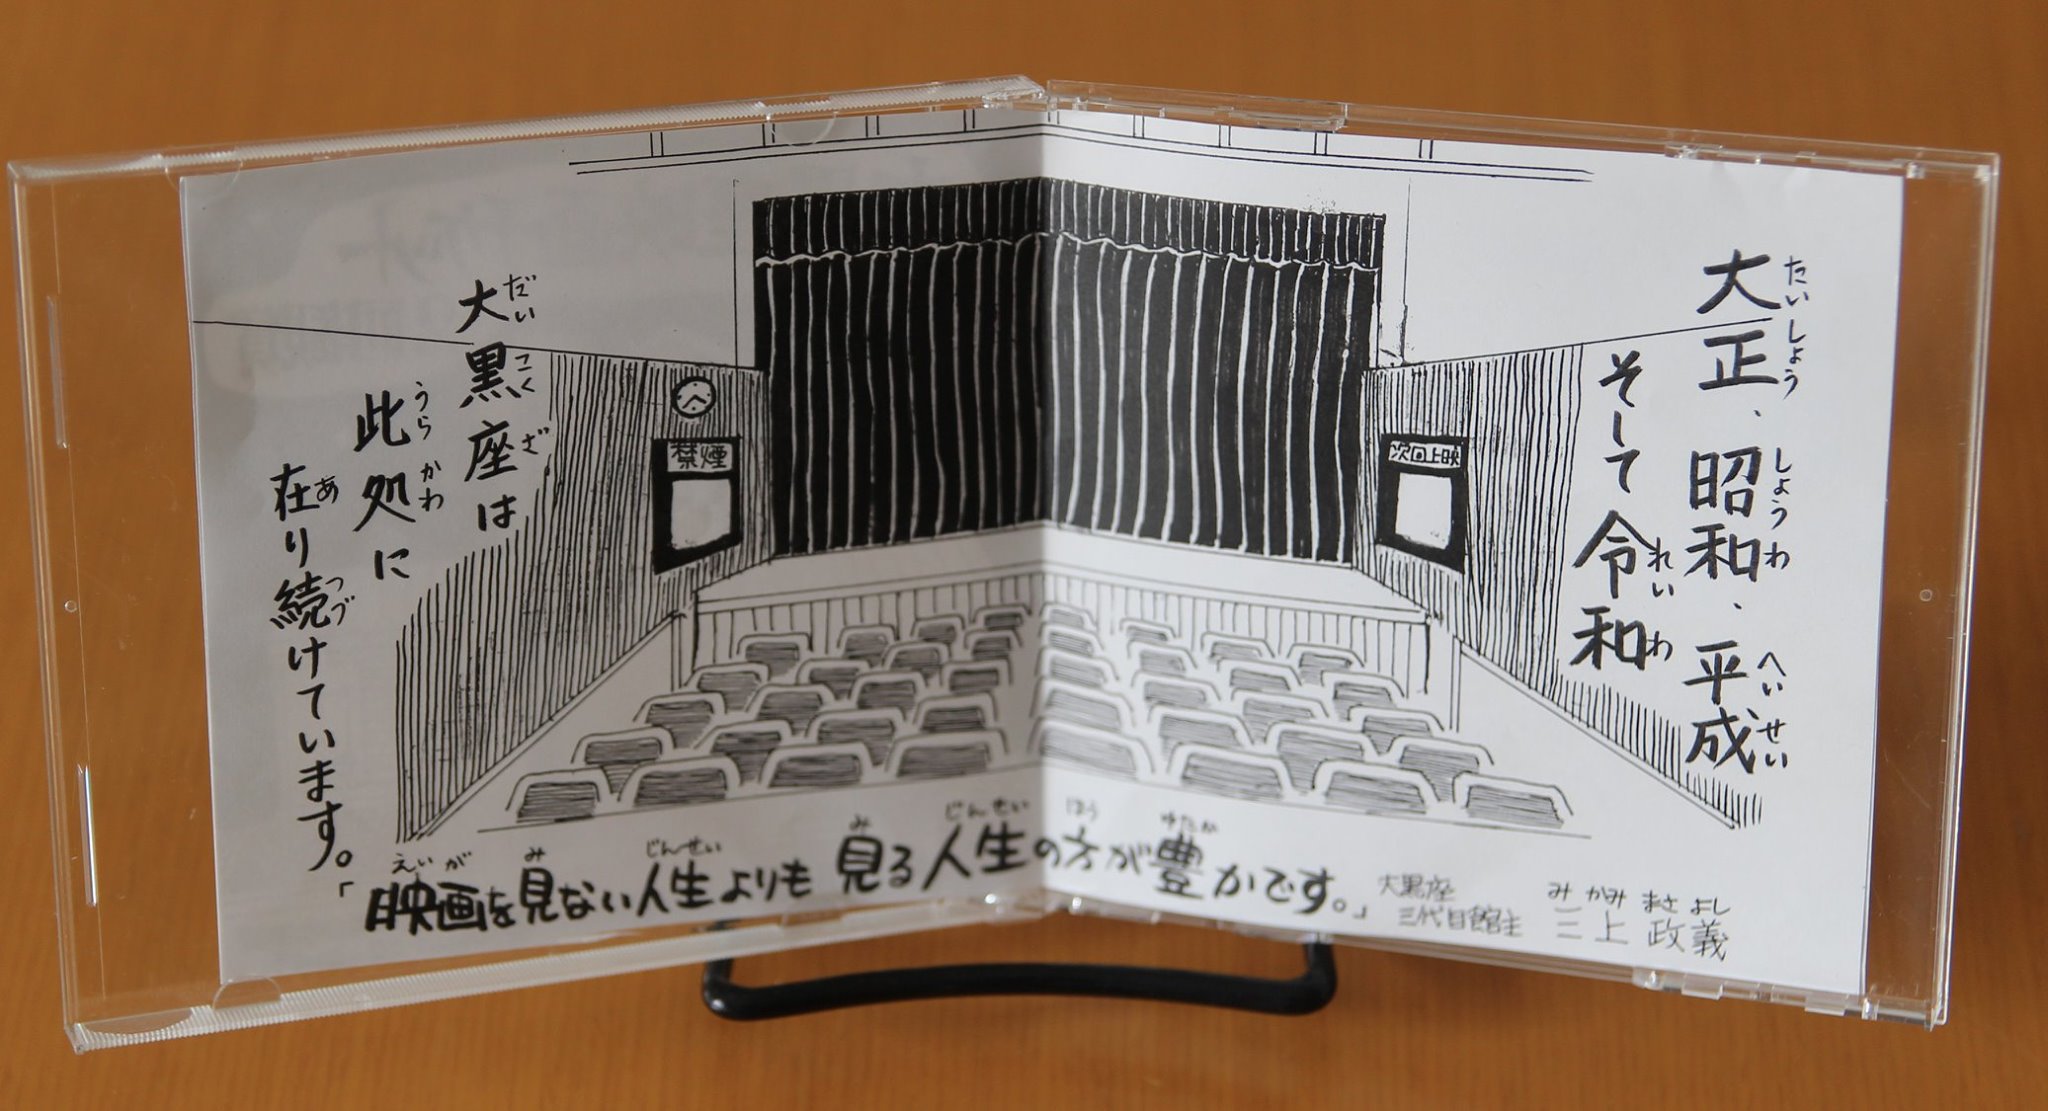 大正、昭和、平成
たいしょう しょうわ へいせい
そして令和
れいわ
大黒座は
だいこくざ
此処に
うらかわ
在り続けています。
あ つづ
「映画を見ない人生よりも見る人生の方が豊かです。」
えいが み じんせい み じんせい ほう ゆたか
大黒座
三代目館主
三上政義
みかみ まさよし
禁煙
次回上映